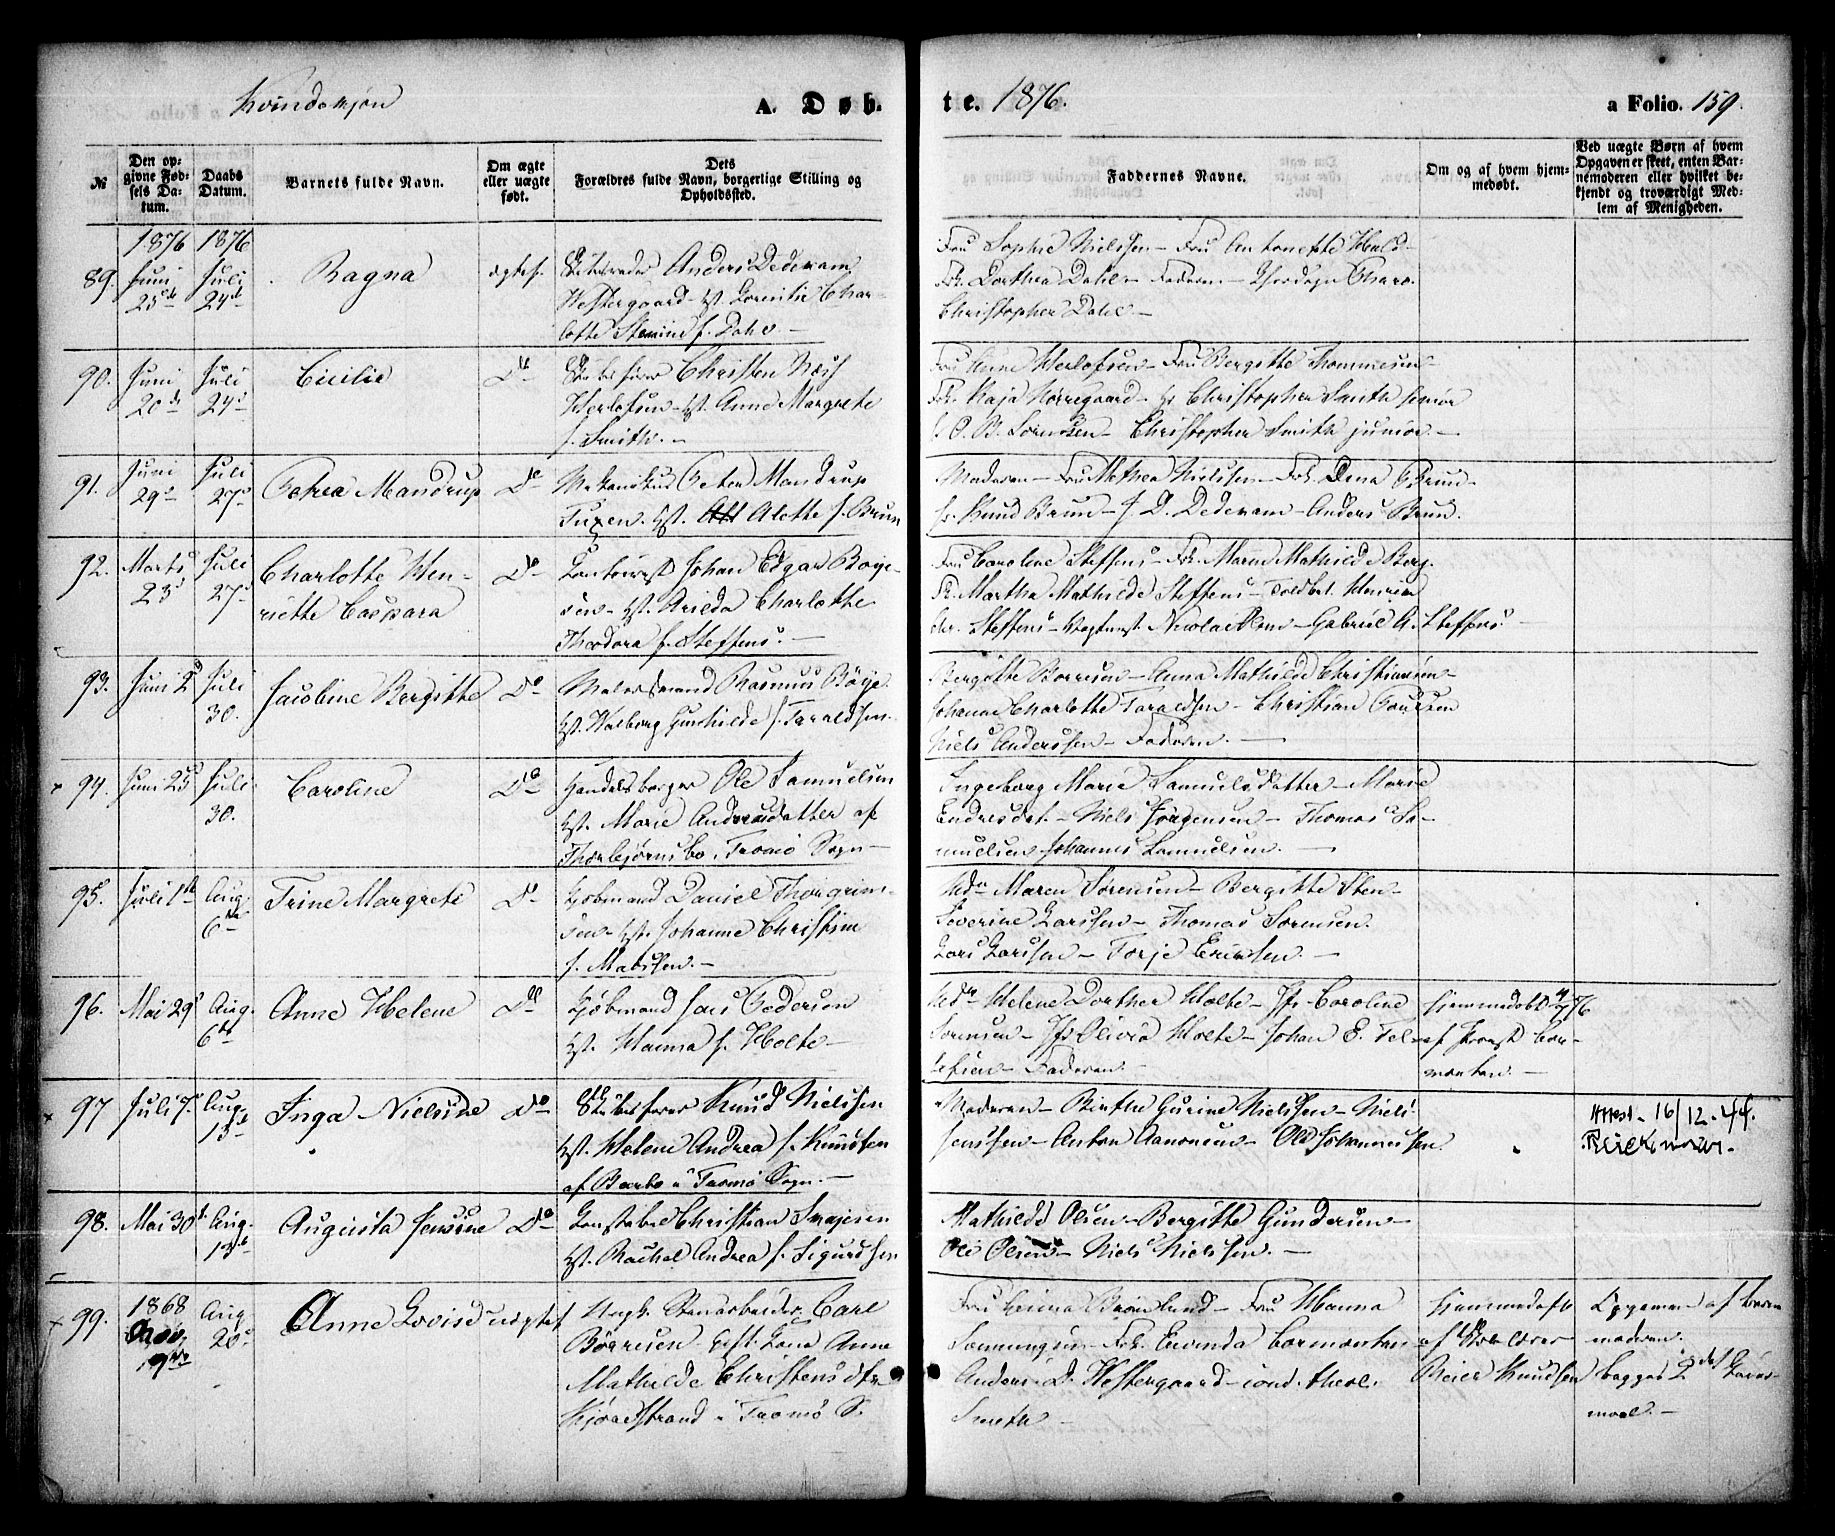 Kvindekjøn
A. Døb-
te. 1876.
a Folio. 159.
No
Den op-
givne Fød-
sels Da-
tum.
Daabs
Datum.
Barnets fulde Navn.
Om ægte
eller uægte
født.
Dets
Forældres fulde Navn, borgerlige Stilling og
Opholdssted.
Faddernes Navne.
Om og af hvem hjem-
medøbt.
Ved uægte Børn af hvem
Opgaven er skeet, enten Bar-
nemoderen eller hvilket be-
kjendt og troværdigt Med-
lem af Menigheden.
1876 1876
89. Juni 25de Juli 24de Ragna ægtef. Anders Dedekam
Hestergaard Char-
lotte f. Dahl
Fru Sophie Nielsen - Fru Antonette Hald -
Frk. Dorthea Dahl - Faderen -
Christopher Dahl -
90. Juni 20de Juli 24d Cicilie Do Skibsfører Christen Næss
Herlofsen - Hst. Anne Margrete
f. Smith. -
Fru Anne Herlofsen - Fru Bergitte Thommesen
Frk. Kaja Nørregaard - Hr Christopher Smith senior
O. B. Sørensen - Christopher Smith junior. -
91. Juni 29d Juli 27d Petrea Mandrup Do Mekanikus Peter Mandrup
Tuxen. Hst. Alette f. Brun
Moderen - Fru Mathea Nielsen - Frk. Dina Brun -
Hr. Knud Brun - J. D. Dedekam - Anders Brun.
92. Marts 23d Juli 27d Charlotte Hen-
riette Caspara Do Contorist Johan Edgar Boye-
sen - Hst. Charlotte
Theodora f. Steffens. -
Fru Caroline Steffens - Frk. Maren Mathilde Berg.
Fr. Martha Mathilde Steffens - Toldbet. Henrik
Chr. Steffens - Nicolai Olsen - Gabriel A. Steffens
93. Juni 2d Juli 30. Jacobine Bergitte Do Matros Rasmus Bøye.
Hst. Walborg Gunhilde f. Taraldsen.
Bergitte Børresen - Anna Mathilde Christiansen -
Johanne Charlotte Taraldsen - Christian
Niels Anderssen - Faderen. -
× 94. Juni 25d Juli 30. Caroline Do Handelsborger Ole Samuelsen
Hst. Marie Andreasdatter af
Thorbjørnsbo i Tromø Sogn -
Ingeborg Marie Samuelsdatter - Marie
Endresdat. - Niels Jørgensen - Thomas Sa-
muelsen Johannes Samuelsen. -
95. Juli 1ste Aug. 6te Trine Margrete Do Kjøbmand Daniel Thorgrim-
sen - Hst. Johanne Christine
f. Madssen. -
Md. Maren Sørensen - Bergitte Sten -
Severine Larssen - Thomas Sørensen.
Lars Larssen - Terje Ericksen. -
96. Mai 29d Aug. 6te Anne Helene Do Kjøbmand Jens Pedersen
Hst. Hanna f. Holte -
Md. Helene Dorthea Holte - Jfr. Caroline
Sørensen - Jfr Olivia Holte - Johan E. Tel-
lefsen - Faderen. -
Hjemmedøbt 76
af Provst Cor-
montan. -
× 97 Juli 7d Aug. 13d Inga Nielsine Do Skibsfører Knud Nielsen
Hst. Helene Andrea f. Knudsen
af Barbo i Tromø Sogn. -
Moderen - Birthe Gurine Nielsen - Niels
Jenssen - Anton Aanonsen - Ole Johannessen.
Attest - 16/12-44.
98. Mai 30d Aug. 13d Augusta Jensine Do Konstabel Christian
Hst. Rachel Andrea f. Sigurdsen
Mathilde Olsen - Bergitte Gundersen -
Ole Olsen - Niels Nielsen. -
× 99. 1868 Nov. 19de Aug. 20d Anne Lovise uægtef Ungk. Stenarbeider Carl
Børresen - Gift Kone Anna
Mathilde Christensdtr
Kjørestrand i Tromø S.
Fru Bøe Lund - Fru Hanna
Sønningsen - Frk. Evinda Cormontan
Anders D. Hestergaard - cand. theol.
Smith -
Hjemmedøbt
af Skolelærer
Beier Knudsen
Opgaven af Barne-
moderen.
begges 2det Leier-
maal. -